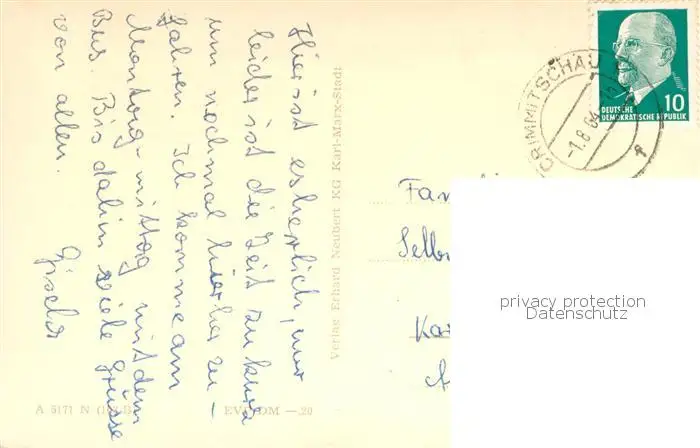 Hier ist es herrlich, nur
leider ist die Zeit zu kurz
um nochmal hierher zu
fahren. Ich komme am
Montag-mittag mit dem
Bus. Bis dahin viele Grüsse
von allen.
Gisela
Verlag Erhard Neubert KG Karl-Marx-Stadt
A 5171 N EVP DM —.20
CRIMMITSCHAU
-1.8.64
10
DEUTSCHE
DEMOKRATISCHE REPUBLIK
Fam
Selb
Ka
privacy protection
Datenschutz